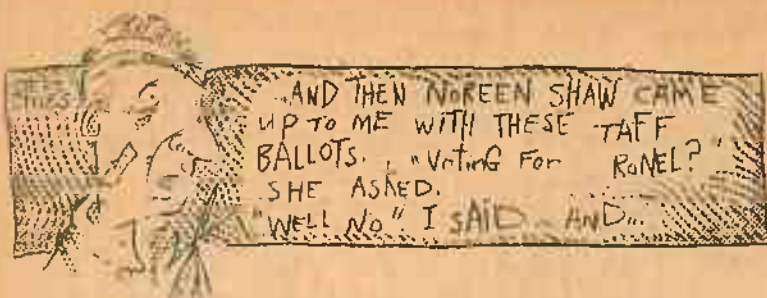 ...AND THEN NOREEN SHAW CAME
UP TO ME WITH THESE TAFF
BALLOTS. "VOTING FOR RONEL?"
SHE ASKED.
"WELL NO" I SAID AND...